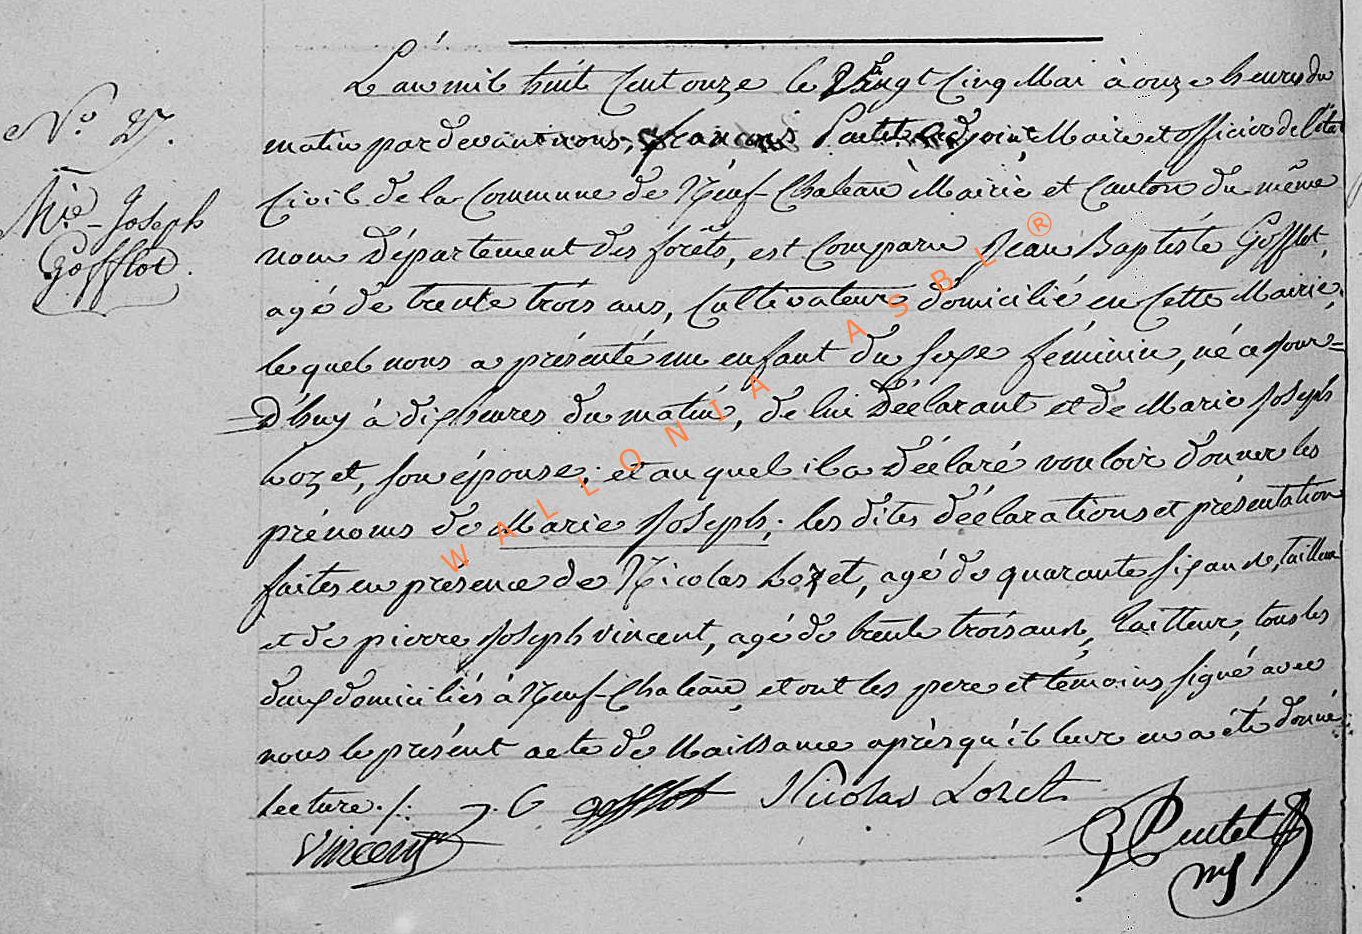 N.o 27.
M.ie Joseph
Gofflot.
L'an mil huit Cent onze le Vingt Cinq Mai à onze heures du
matin pardevant nous, françois Pautet adjoint Maire et officier de l'état
Civil de la Commune de Neuf-Chateau Mairie et Canton du même
nom Département des forêts, est Comparu Jean Baptiste Gofflot,
agé de trente trois ans, Cultivateur domicilié en Cette Mairie,
lequel nous a présenté un enfant du sexe féminin, né a jour=
=D'huy à dix heures du matin, de lui Déclarant et de Marie Joseph
Lozet, son épouse; et auquel il a Déclaré vouloir donner les
prénoms de Marie Joseph; les dites déclarations et présentation
faites en présence de Nicolas Lozet, agé de quarante six ans, tailleur
et de pierre Joseph vincent, agé de trente trois ans, tailleur, tous les
deux domiciliés à Neuf-Chateau, et ont les pere et témoins signé avec
nous le présent acte de Naissance après qu'il leur en a été donné
lecture ./.
J. B gofflot Nicolas Lozet
vincent
WALLONIA ASBL ®